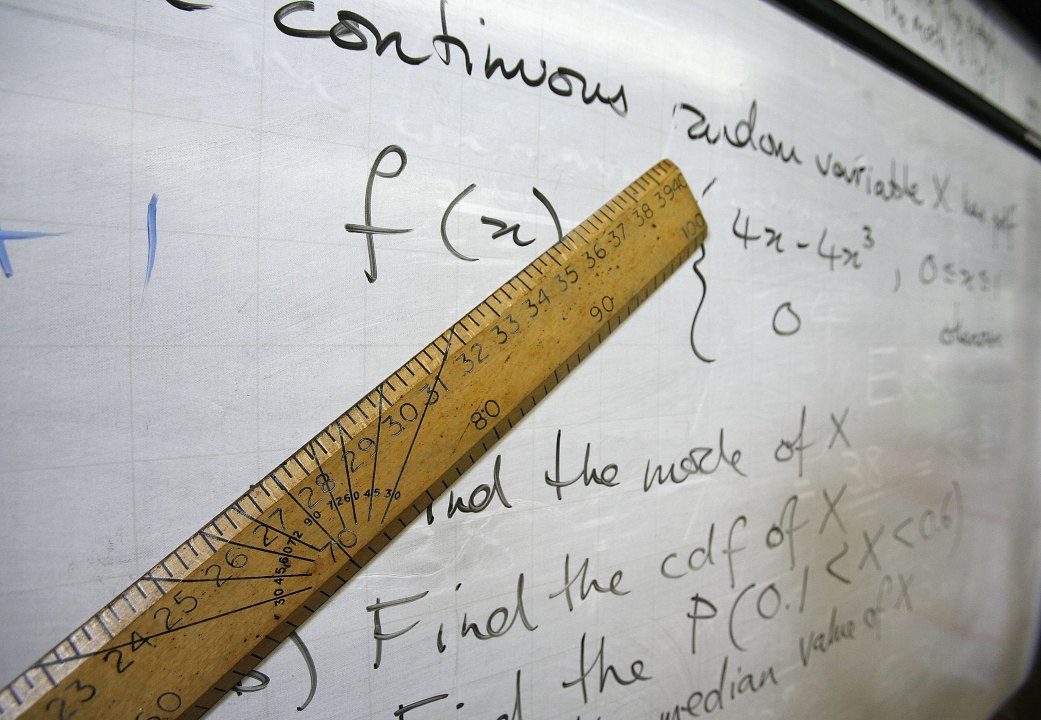 continuous random variable X has pdf
f(x) { 4x - 4x³ , 0≤x≤1
0 otherwise
1
40 39 38 37 36 35 34 33 32 31 30 29 28 27 26 25 24 23
100 90 80 70 60
90 72 60 45 30
30 45 60 72
Find the mode of X
b) Find the cdf of X
Find the P(0.1 < X < 0.6)
median value of X